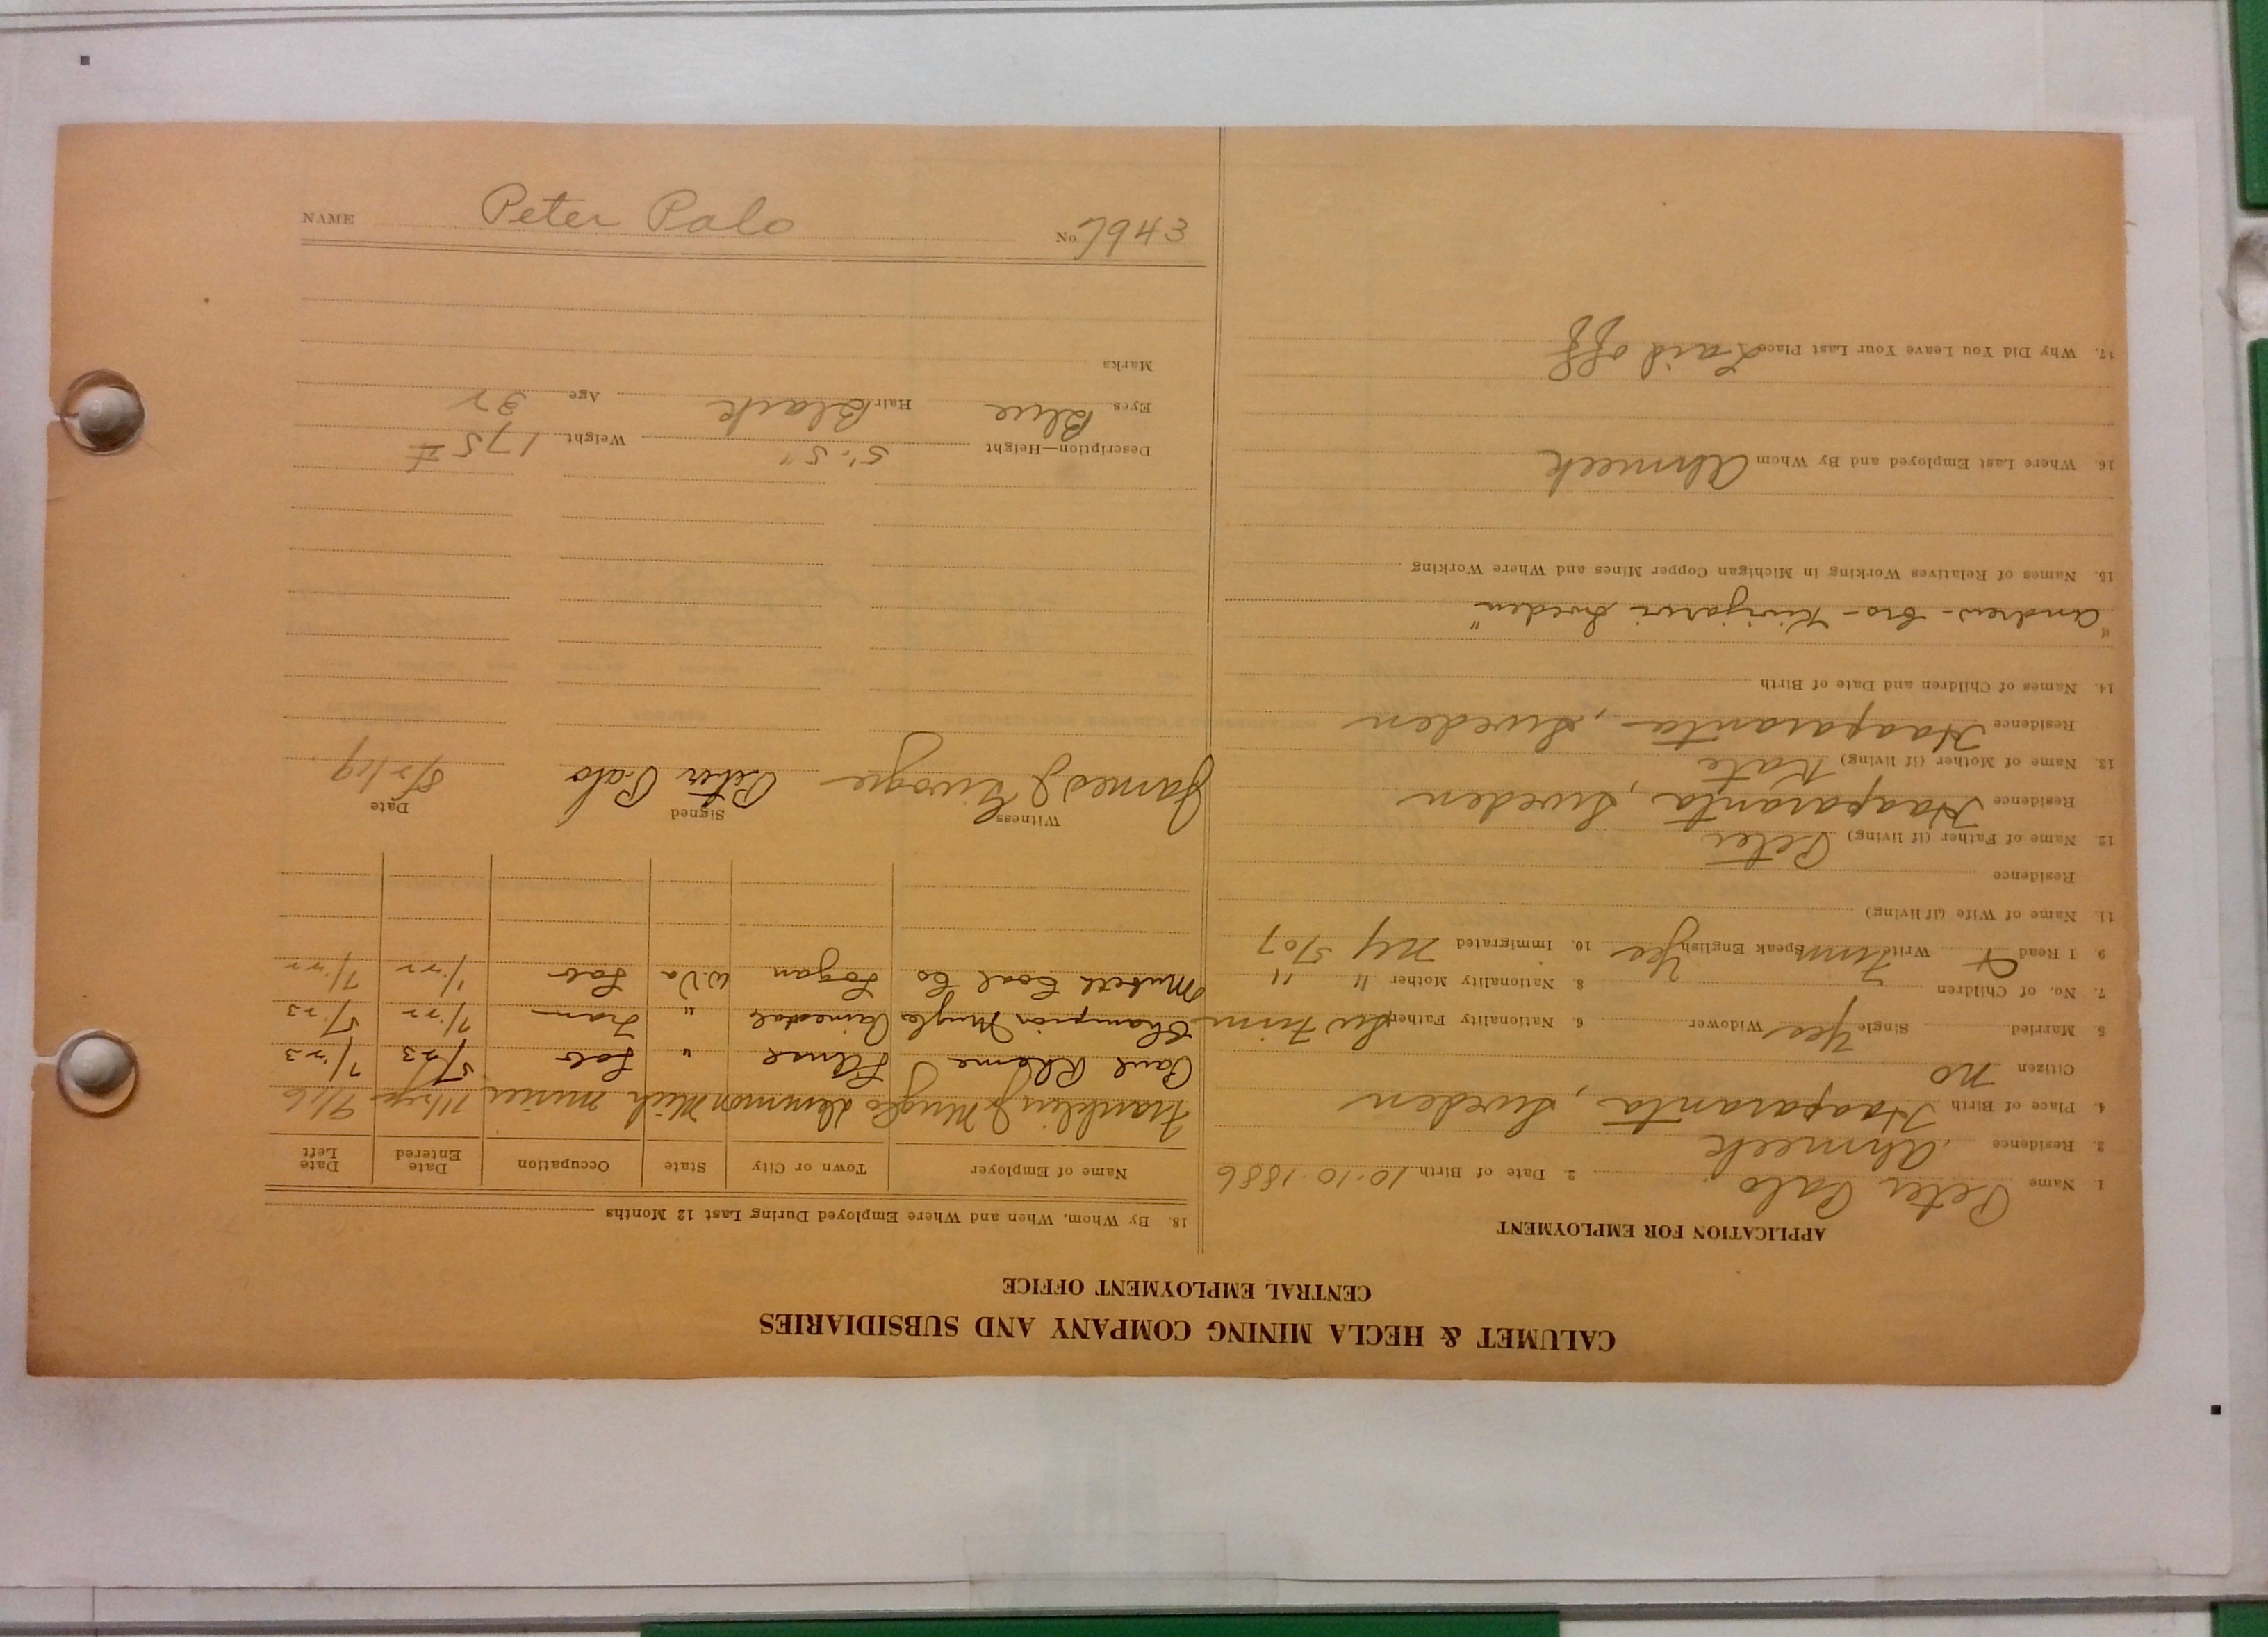 CALUMET & HECLA MINING COMPANY AND SUBSIDIARIES
CENTRAL EMPLOYMENT OFFICE
APPLICATION FOR EMPLOYMENT
1. Name Peter Palo 2. Date of Birth 10.10.1886
3. Residence Ahmeek
4. Place of Birth Haaparanta, Sweden
Citizen no
5. Married Single Yes Widower 6. Nationality Father Finn
7. No. of Children 8. Nationality Mother " "
9. I Read Write Finn Speak English Yes 10. Immigrated NY 5/07
11. Name of Wife (if living)
Residence
12. Name of Father (if living) Peter
Residence Haaparanta, Sweden
13. Name of Mother (if living) Kate
Residence Haaparanta, Sweden
14. Names of Children and Date of Birth
"Andrew - bro - Kivijarvi Sweden"
15. Names of Relatives Working in Michigan Copper Mines and Where Working
16. Where Last Employed and By Whom Ahmeek
17. Why Did You Leave Your Last Place Laid off
18. By Whom, When and Where Employed During Last 12 Months
Name of Employer Town or City State Occupation Date Entered Date Left
Franklin Mng Co Mich miner 9/16
Carl " Lab 5/23 7/23
Champion Mng Co Painesdal " Tram 7/22 5/23
Coal Co Logan W.Va Lab 1/22 7/22
Witness Signed Date
James J Peter Palo 8/2/19
Description—Height 5'.5" Weight 175 #
Eyes Blue Hair Black Age 32
Marks
NAME Peter Palo No. 7943